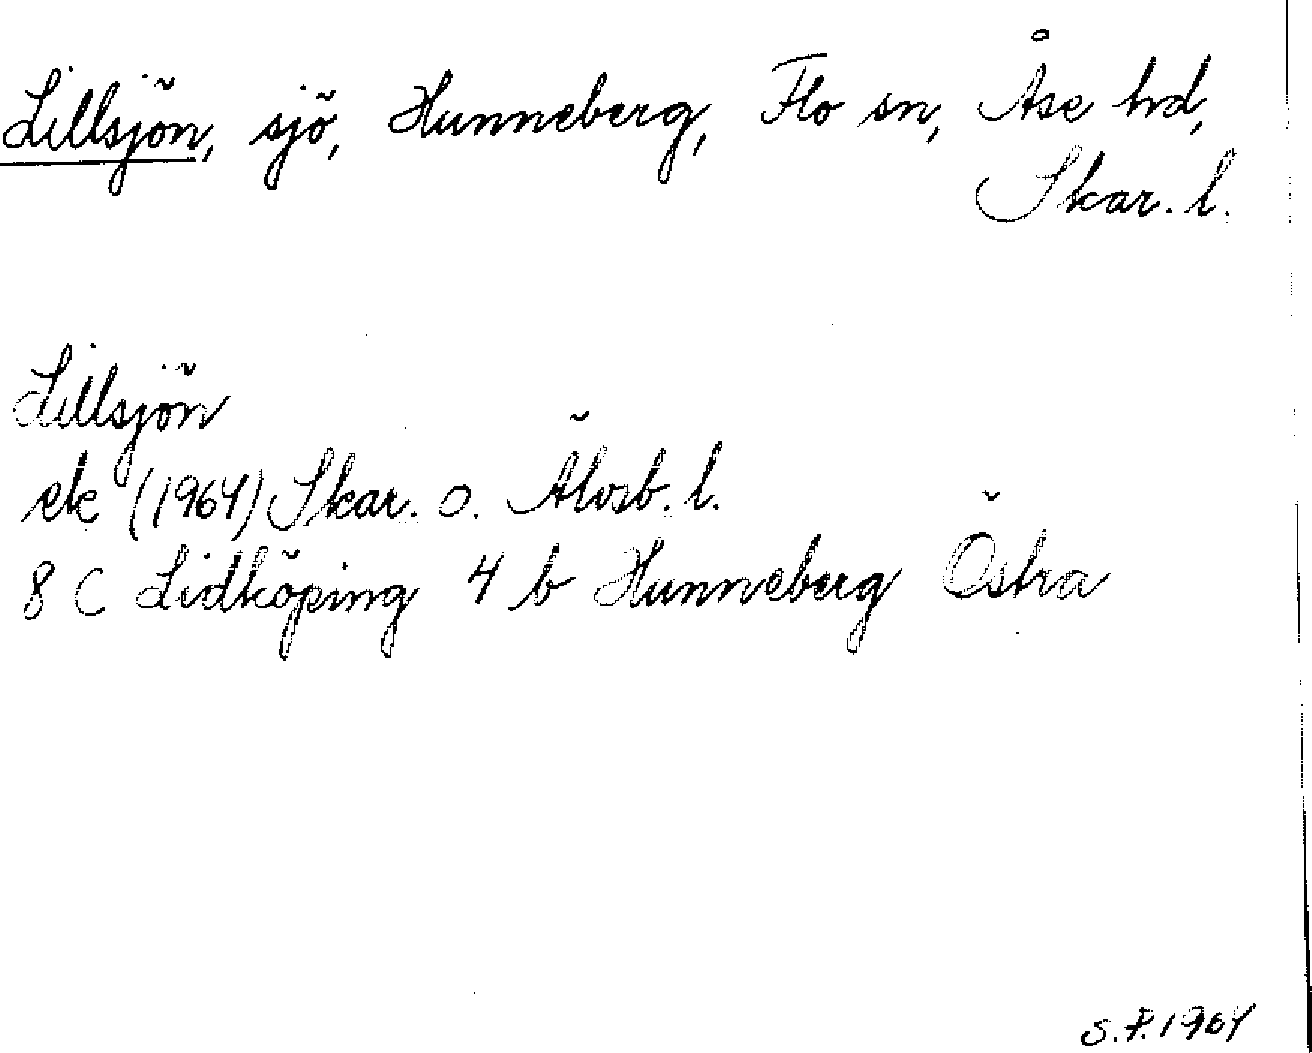 Lillsjön, sjö, Hunneberg, Flo sn, Åse hd,
Skar. l.
Lillsjön
ek (1964) Skar. o. Älvsb. l.
8 C Lidköping 4 b Hunneberg Östra
S.P. 1964